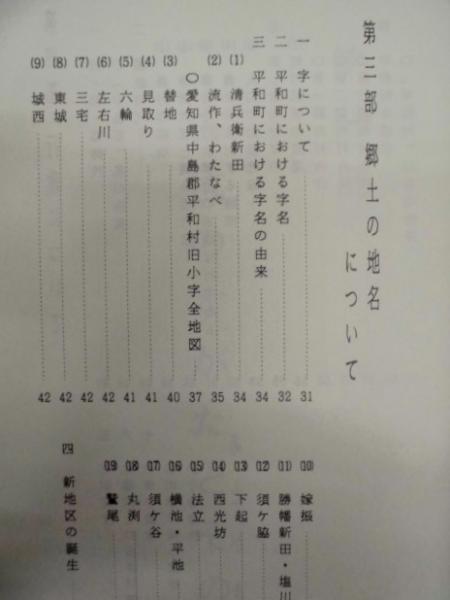 第三部 郷土の地名
について
一 字について 31
二 平和町における字名 32
三 平和町における字名の由来 34
(1) 清兵衛新田 34
(2) 流作、わたなべ 35
〇愛知県中島郡平和村旧小字全地図 37
(3) 替地 40
(4) 見取り 41
(5) 六輪 41
(6) 左右川 42
(7) 三宅 42
(8) 東城 42
(9) 城西 42
(10) 嫁振
(11) 勝幡新田・塩川
(12) 須ケ脇
(13) 下起
(14) 西光坊
(15) 法立
(16) 横池・平池
(17) 須ケ谷
(18) 丸渕
(19) 鷲尾
四 新地区の誕生